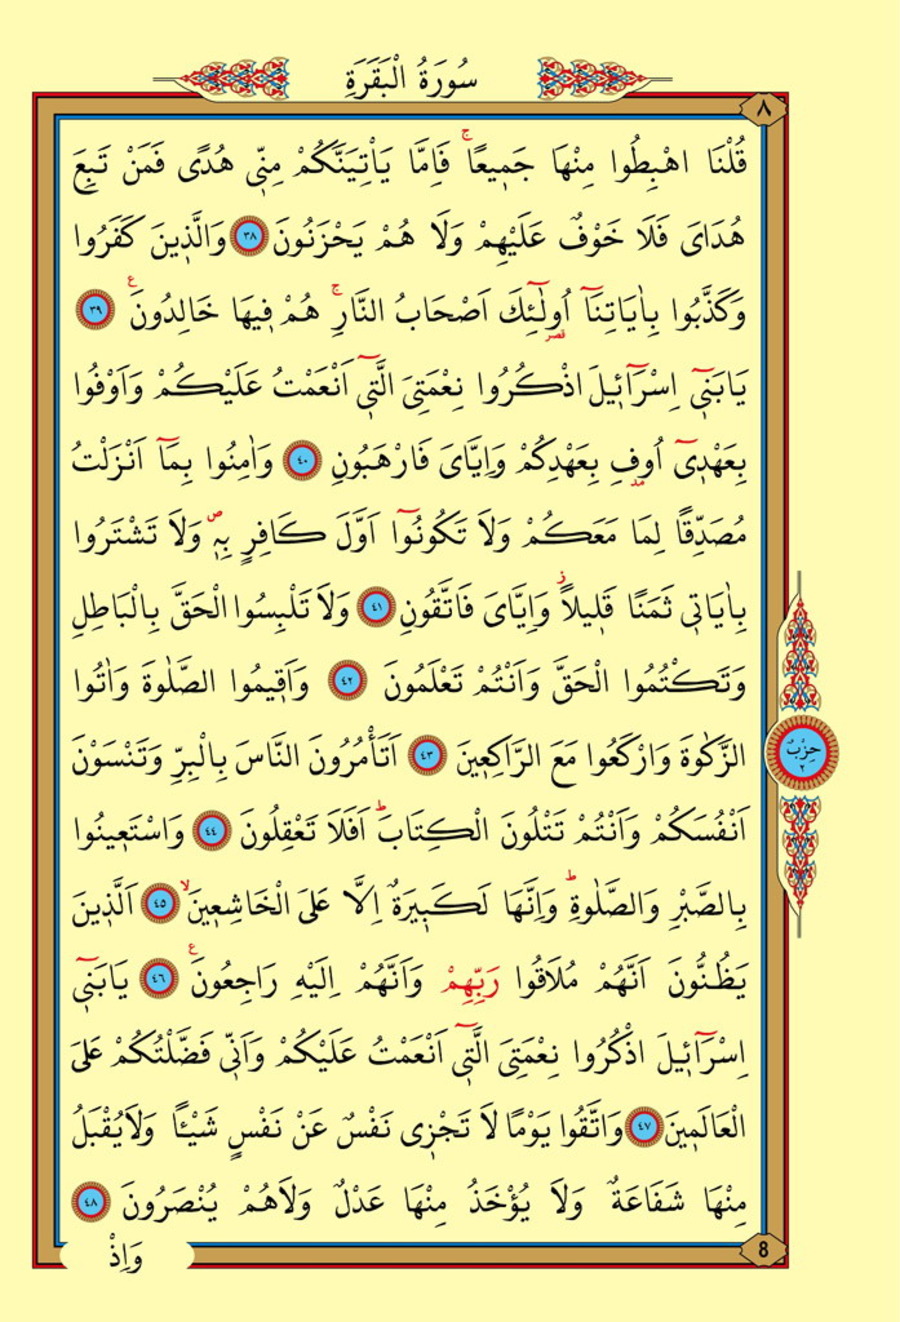 سُورَةُ الْبَقَرَةِ
٨
قُلْنَا اهْبِطُوا مِنْهَا جَمٖيعًاۚ فَاِمَّا يَاْتِيَنَّكُمْ مِنّٖى هُدًى فَمَنْ تَبِعَ
هُدَاىَ فَلَا خَوْفٌ عَلَيْهِمْ وَلَا هُمْ يَحْزَنُونَ ٣٨ وَالَّذٖينَ كَفَرُوا
وَكَذَّبُوا بِاٰيَاتِنَٓا اُولٰٓئِكَ اَصْحَابُ النَّارِۚ هُمْ فٖيهَا خَالِدُونَࣖ ٣٩
قصر
يَابَنٖٓى اِسْرَٓائٖيلَ اذْكُرُوا نِعْمَتِىَ الَّتٖٓى اَنْعَمْتُ عَلَيْكُمْ وَاَوْفُوا
بِعَهْدٖٓى اُوفِ بِعَهْدِكُمْ وَاِيَّاىَ فَارْهَبُونِ ٤٠ وَاٰمِنُوا بِمَٓا اَنْزَلْتُ
مد
مُصَدِّقًا لِمَا مَعَكُمْ وَلَا تَكُونُٓوا اَوَّلَ كَافِرٍ بِهٖࣕ وَلَا تَشْتَرُوا
بِاٰيَاتٖى ثَمَنًا قَلٖيلًاؗ وَاِيَّاىَ فَاتَّقُونِ ٤١ وَلَا تَلْبِسُوا الْحَقَّ بِالْبَاطِلِ
وَتَكْتُمُوا الْحَقَّ وَاَنْتُمْ تَعْلَمُونَ ٤٢ وَاَقٖيمُوا الصَّلٰوةَ وَاٰتُوا
الزَّكٰوةَ وَارْكَعُوا مَعَ الرَّاكِعٖينَ ٤٣ اَتَأْمُرُونَ النَّاسَ بِالْبِرِّ وَتَنْسَوْنَ
حِزْبٌ
٢
اَنْفُسَكُمْ وَاَنْتُمْ تَتْلُونَ الْكِتَابَؕ اَفَلَا تَعْقِلُونَ ٤٤ وَاسْتَعٖينُوا
بِالصَّبْرِ وَالصَّلٰوةِؕ وَاِنَّهَا لَكَبٖيرَةٌ اِلَّا عَلَى الْخَاشِعٖينَۙ ٤٥ اَلَّذٖينَ
يَظُنُّونَ اَنَّهُمْ مُلَاقُوا رَبِّهِمْ وَاَنَّهُمْ اِلَيْهِ رَاجِعُونَࣖ ٤٦ يَابَنٖٓى
اِسْرَٓائٖيلَ اذْكُرُوا نِعْمَتِىَ الَّتٖٓى اَنْعَمْتُ عَلَيْكُمْ وَاَنّٖى فَضَّلْتُكُمْ عَلَى
الْعَالَمٖينَ ٤٧ وَاتَّقُوا يَوْمًا لَا تَجْزٖى نَفْسٌ عَنْ نَفْسٍ شَيْـًٔا وَلَا يُقْبَلُ
مِنْهَا شَفَاعَةٌ وَلَا يُؤْخَذُ مِنْهَا عَدْلٌ وَلَا هُمْ يُنْصَرُونَ ٤٨
8
وَاِذْ